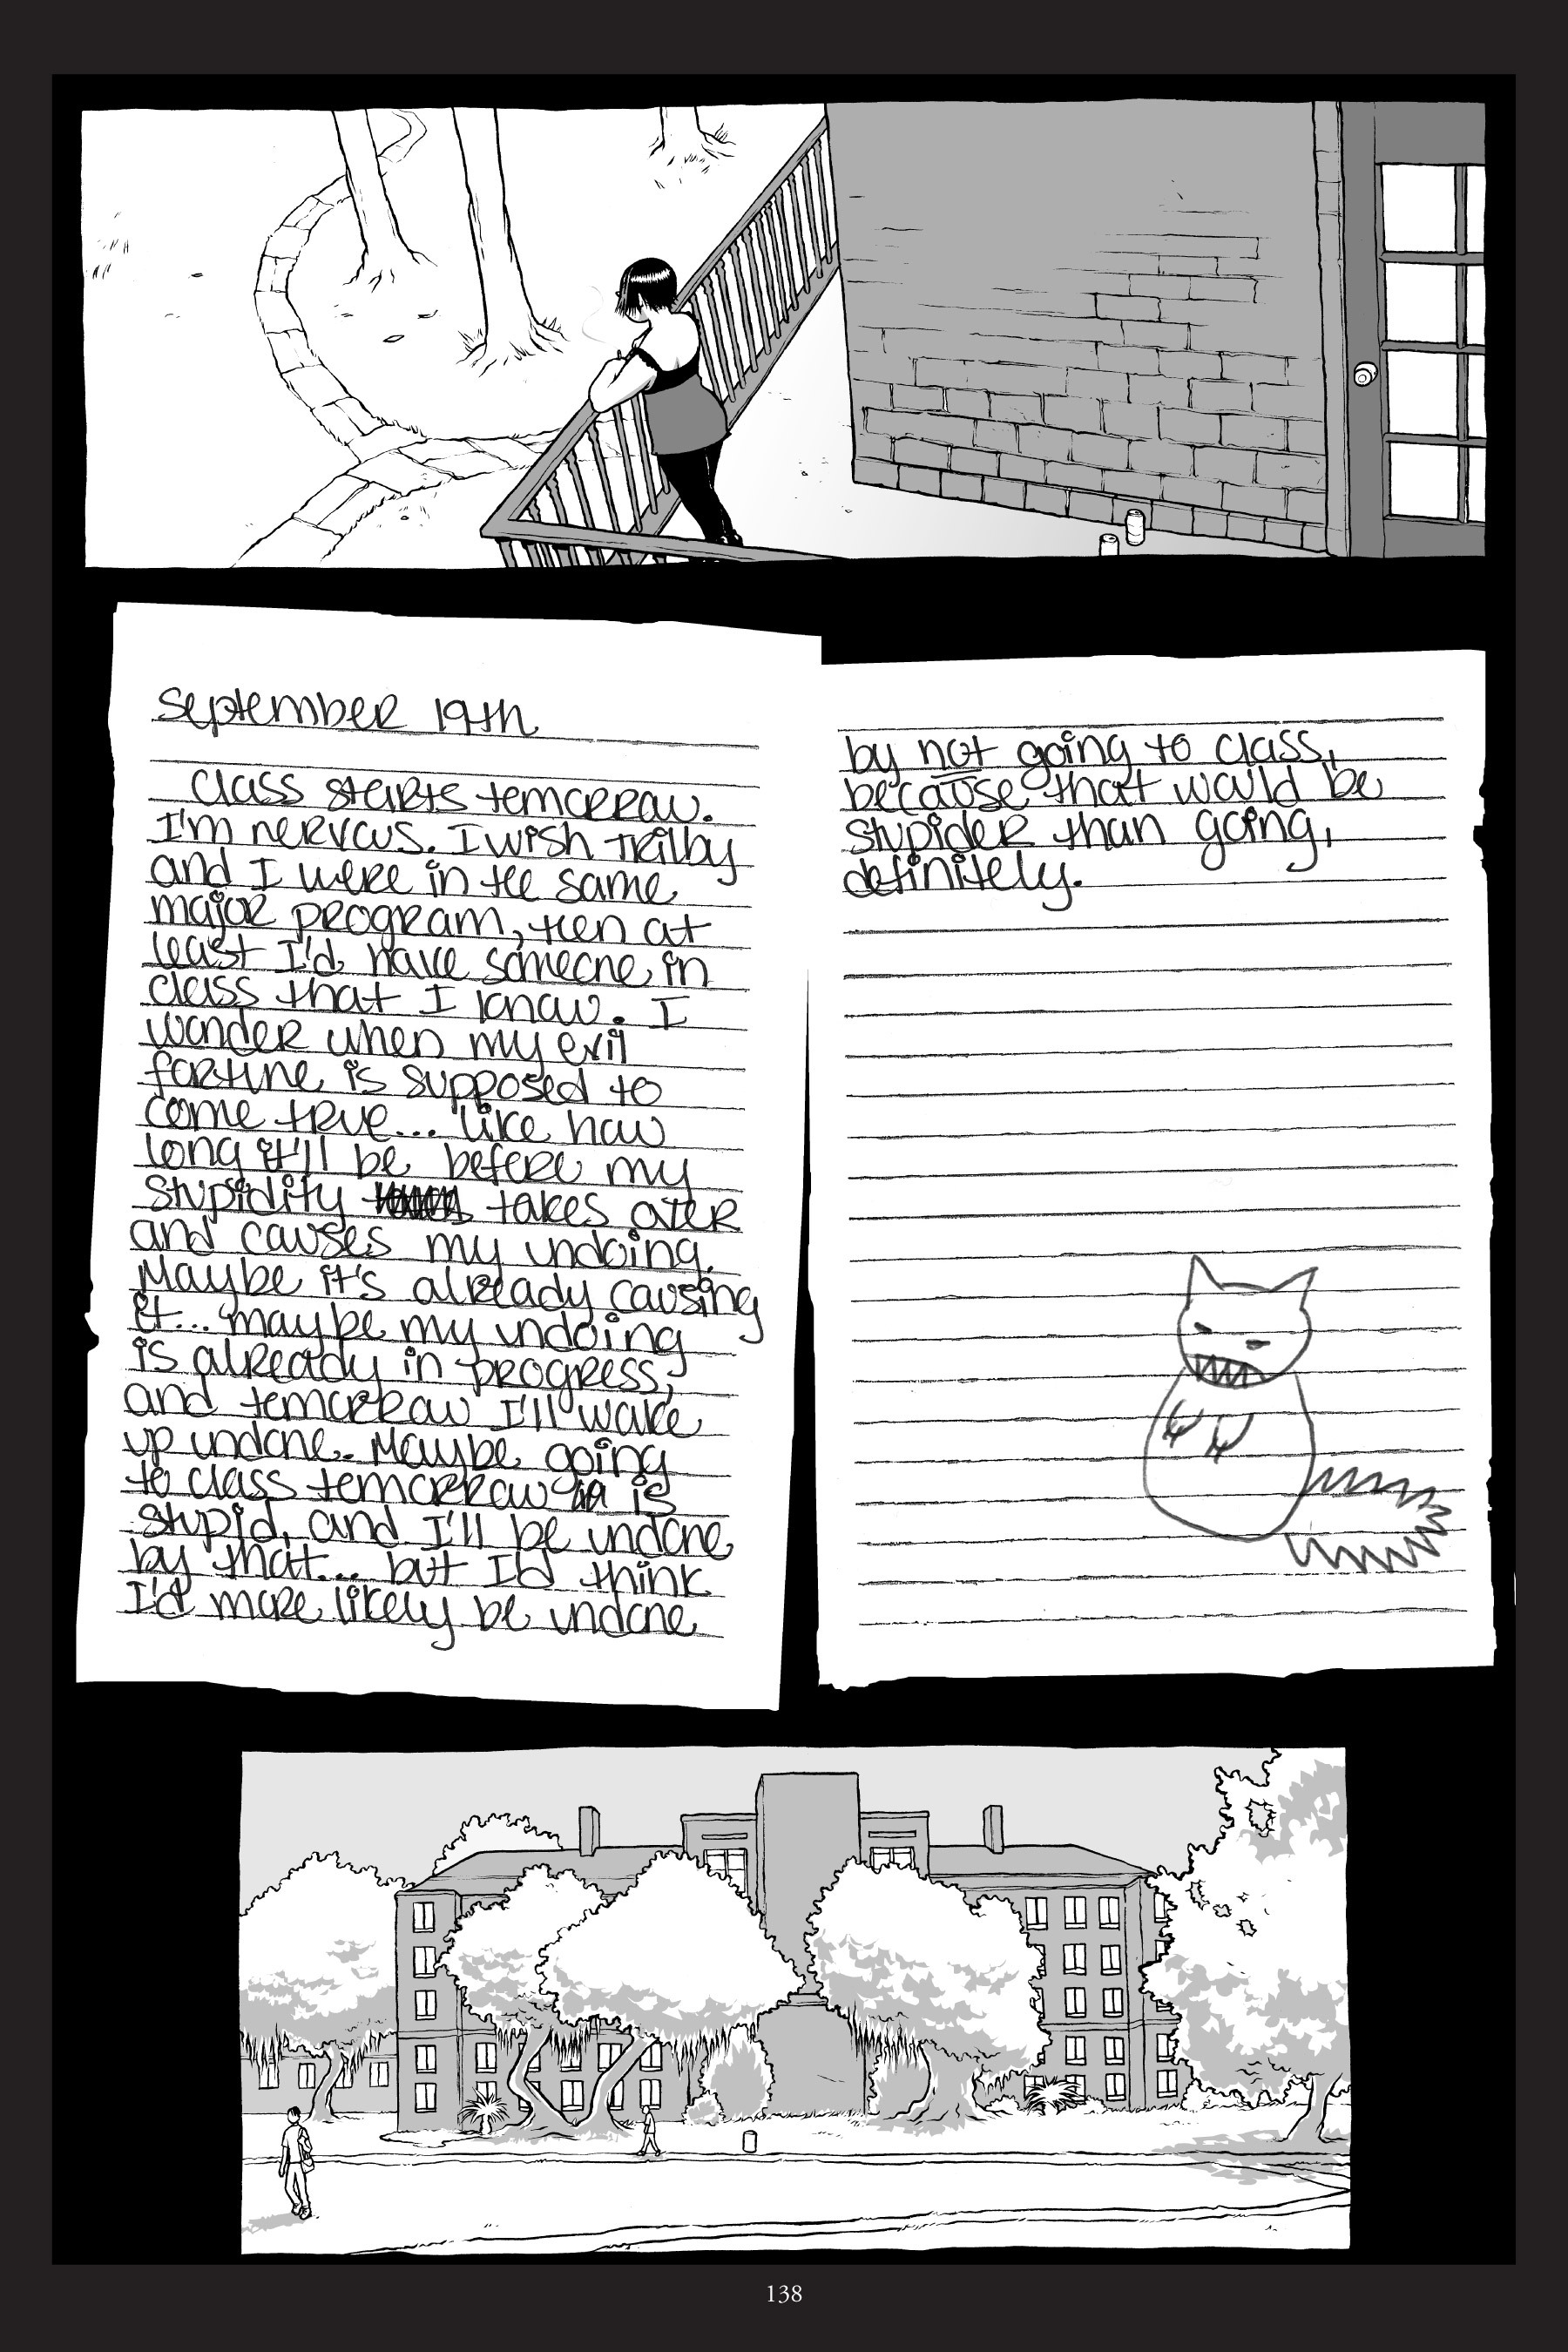 September 19th
Class starts tomorrow.
I'm nervous. I wish Trilby
and I were in the same
major program, then at
least I'd have someone in
class that I know. I
wonder when my evil
fortune is supposed to
come true... like how
long it'll be before my
stupidity takes over
and causes my undoing.
Maybe it's already causing
it... maybe my undoing
is already in progress,
and tomorrow I'll wake
up undone. Maybe going
to class tomorrow is
stupid, and I'll be undone
by that... but I'd think
I'd more likely be undone
by not going to class,
because that would be
stupider than going,
definitely.
138